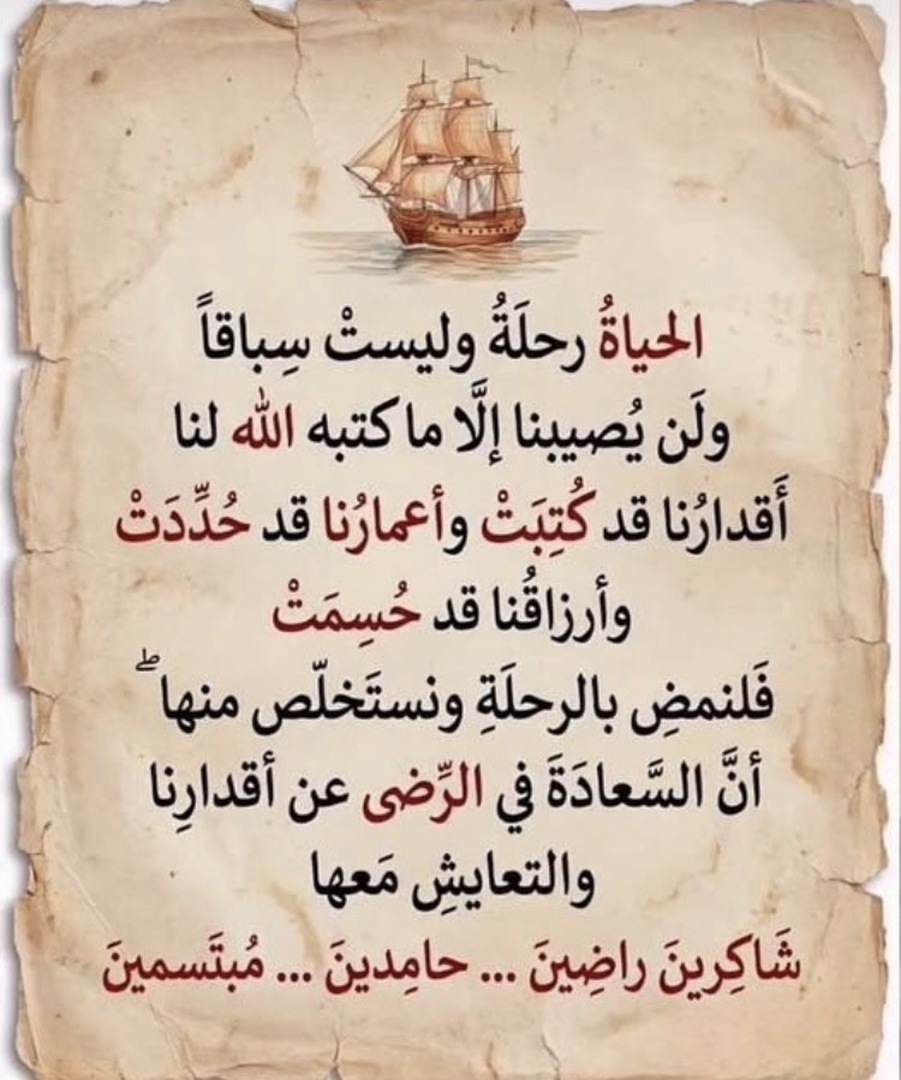 الحياةُ رحلَةُ وليستْ سِباقاً
ولَن يُصيبنا إلَّا ما كتبه الله لنا
أَقدارُنا قد كُتِبَتْ وأعمارُنا قد حُدِّدَتْ
وأرزاقُنا قد حُسِمَتْ
فَلنمضِ بالرحلَةِ ونستَخلّص منها ۖ
أنَّ السَّعادَةَ في الرِّضى عن أقدارِنا
والتعايشِ مَعها
شَاكِرينَ راضِينَ ... حامِدينَ ... مُبتَسمينَ